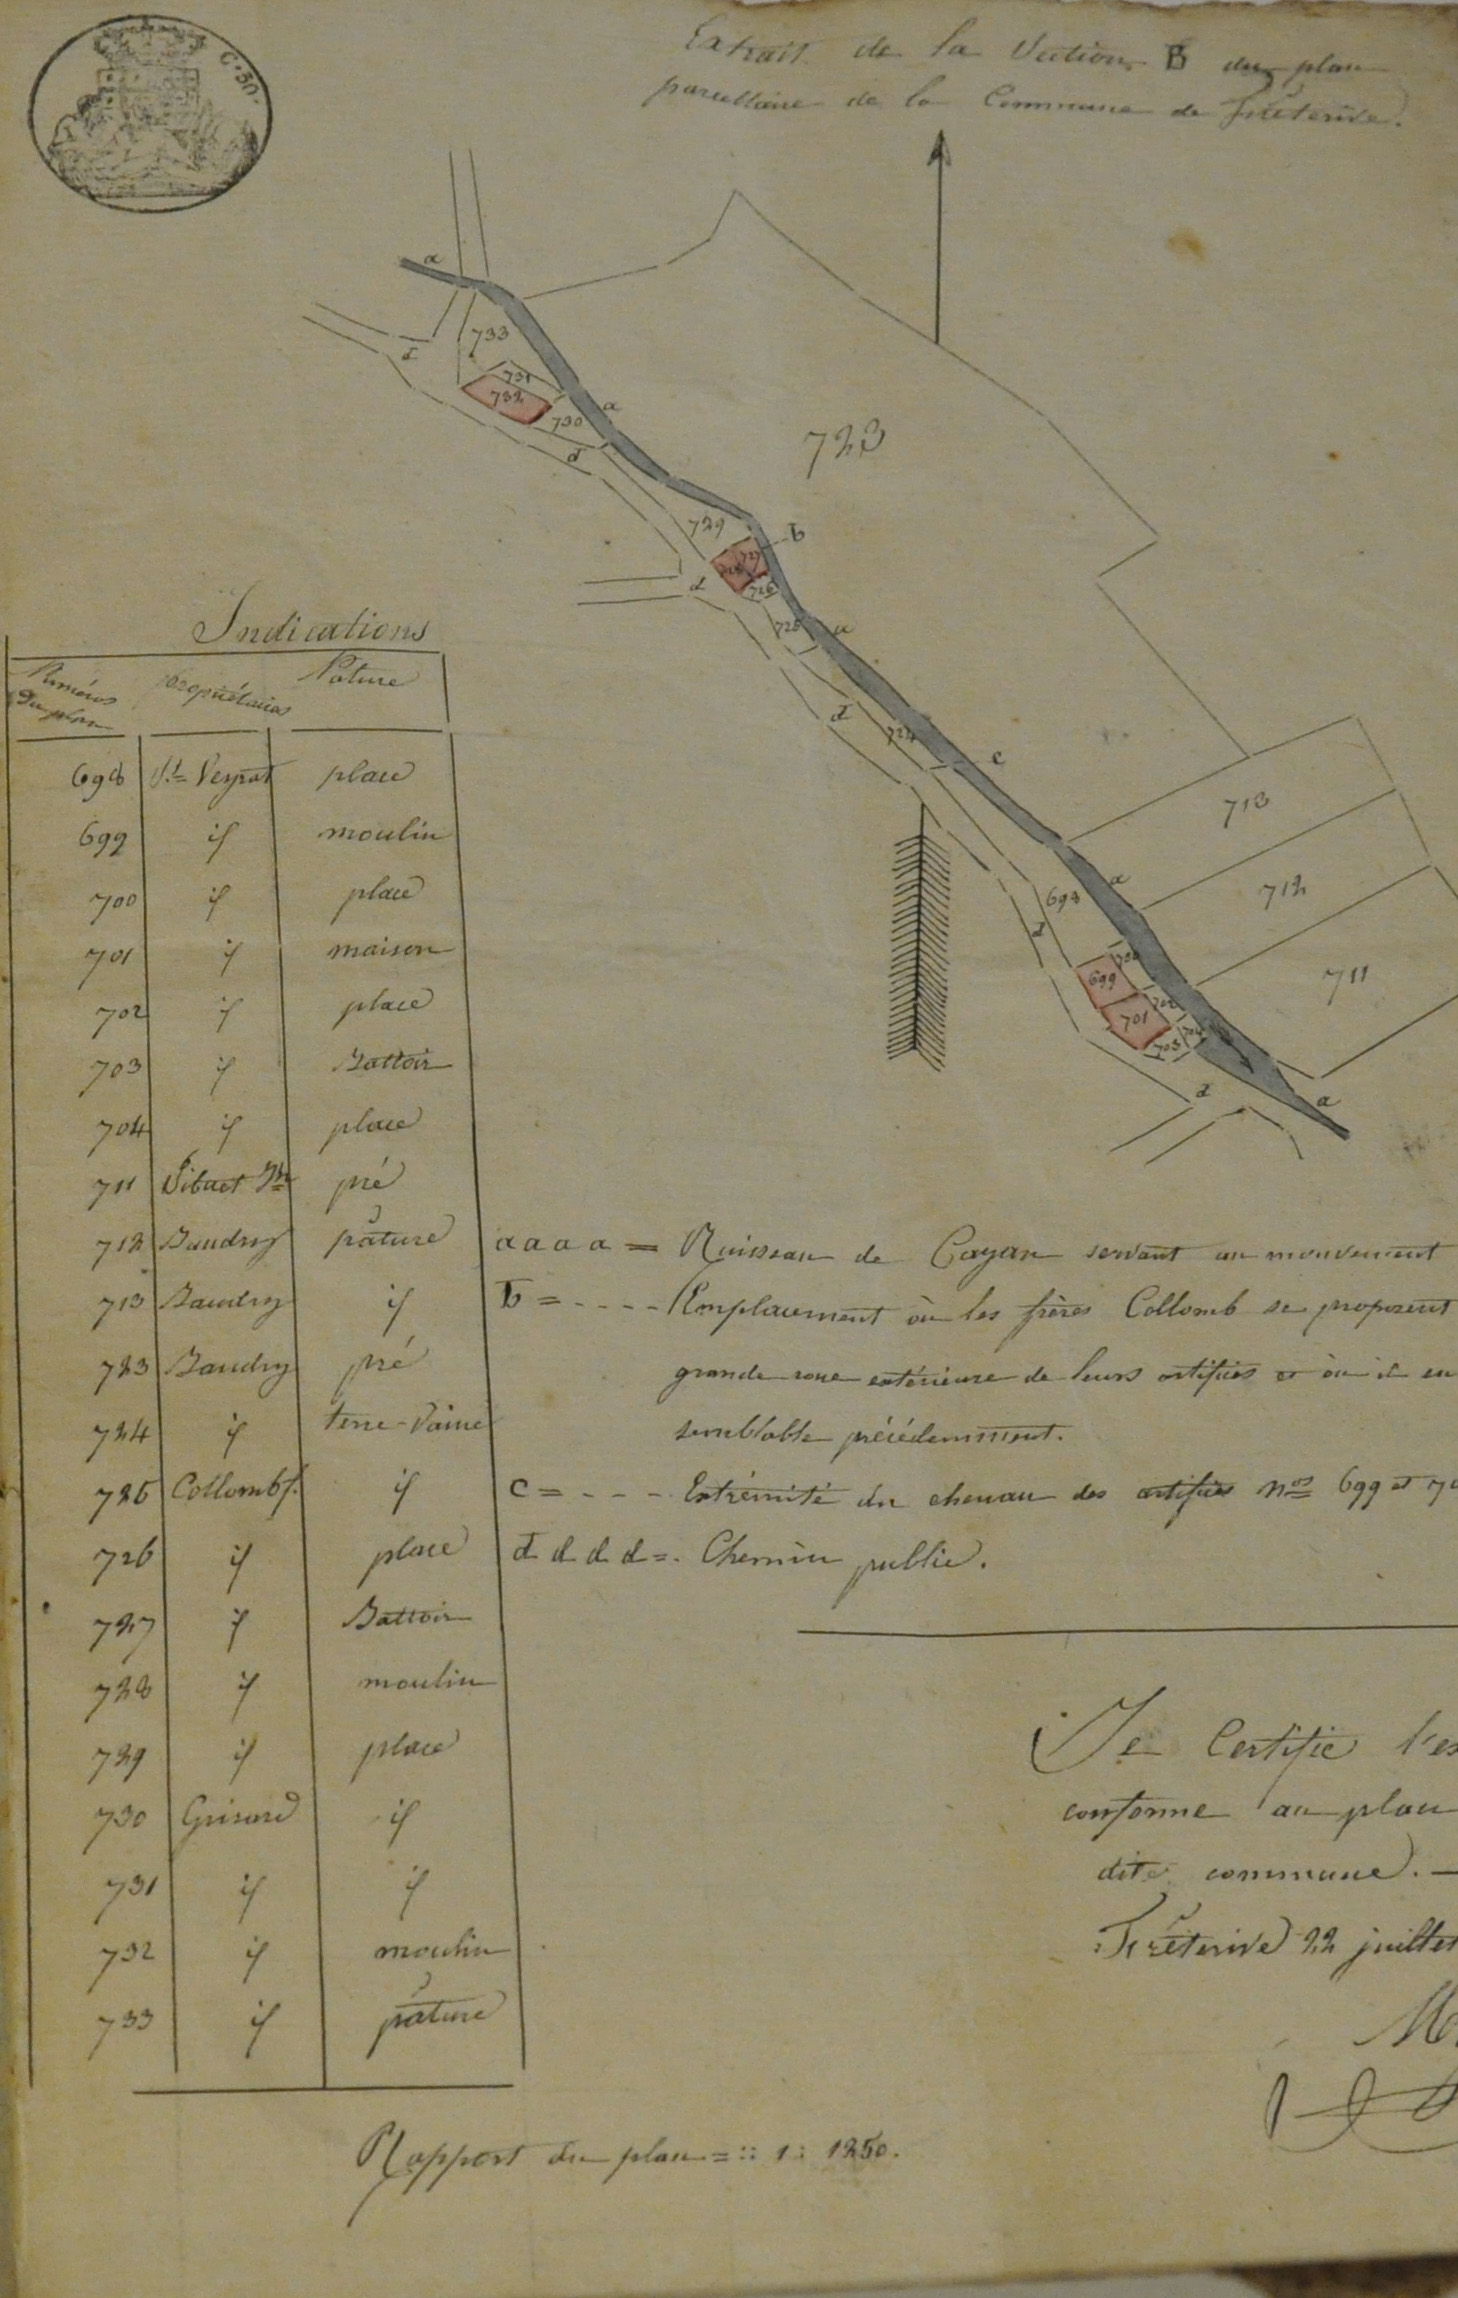 C. 30.
Extrait de la Section B du plan
parcellaire de la Commune de Fréterive.
a
733
d
731
732
730
a
d
723
729
b
727
728
726
d
725
a
d
724
c
713
a
698
712
d
700
699
711
702
701
704
703
d
a
Indications
Numéros du plan propriétaires Nature
698 Veyrat place
699 if moulin
700 if place
701 if maison
702 if place
703 if Battoir
704 if place
711 pré
712 Baudry pâture
713 Baudry if
723 Baudry pré
724 if terre-Vaine
725 Collomb f. if
726 if place
727 if Battoir
728 if moulin
729 if place
730 Grisard if
731 if if
732 if moulin
733 if pâture
a a a a = Ruisseau de Cayan servant au mouvement
b = - - - - Emplacement où les frères Collomb se proposent
grande roue extérieure de leurs artifices et où il en
semblable précédemment.
c = - - - Extrémité du chenau des artifices nos 699 et 70
d d d d =. Chemin public.
Je Certifie l'ex
conforme au plan
dite commune. —
Fréterive 22 juillet
Rapport du plan = :: 1 : 1250.